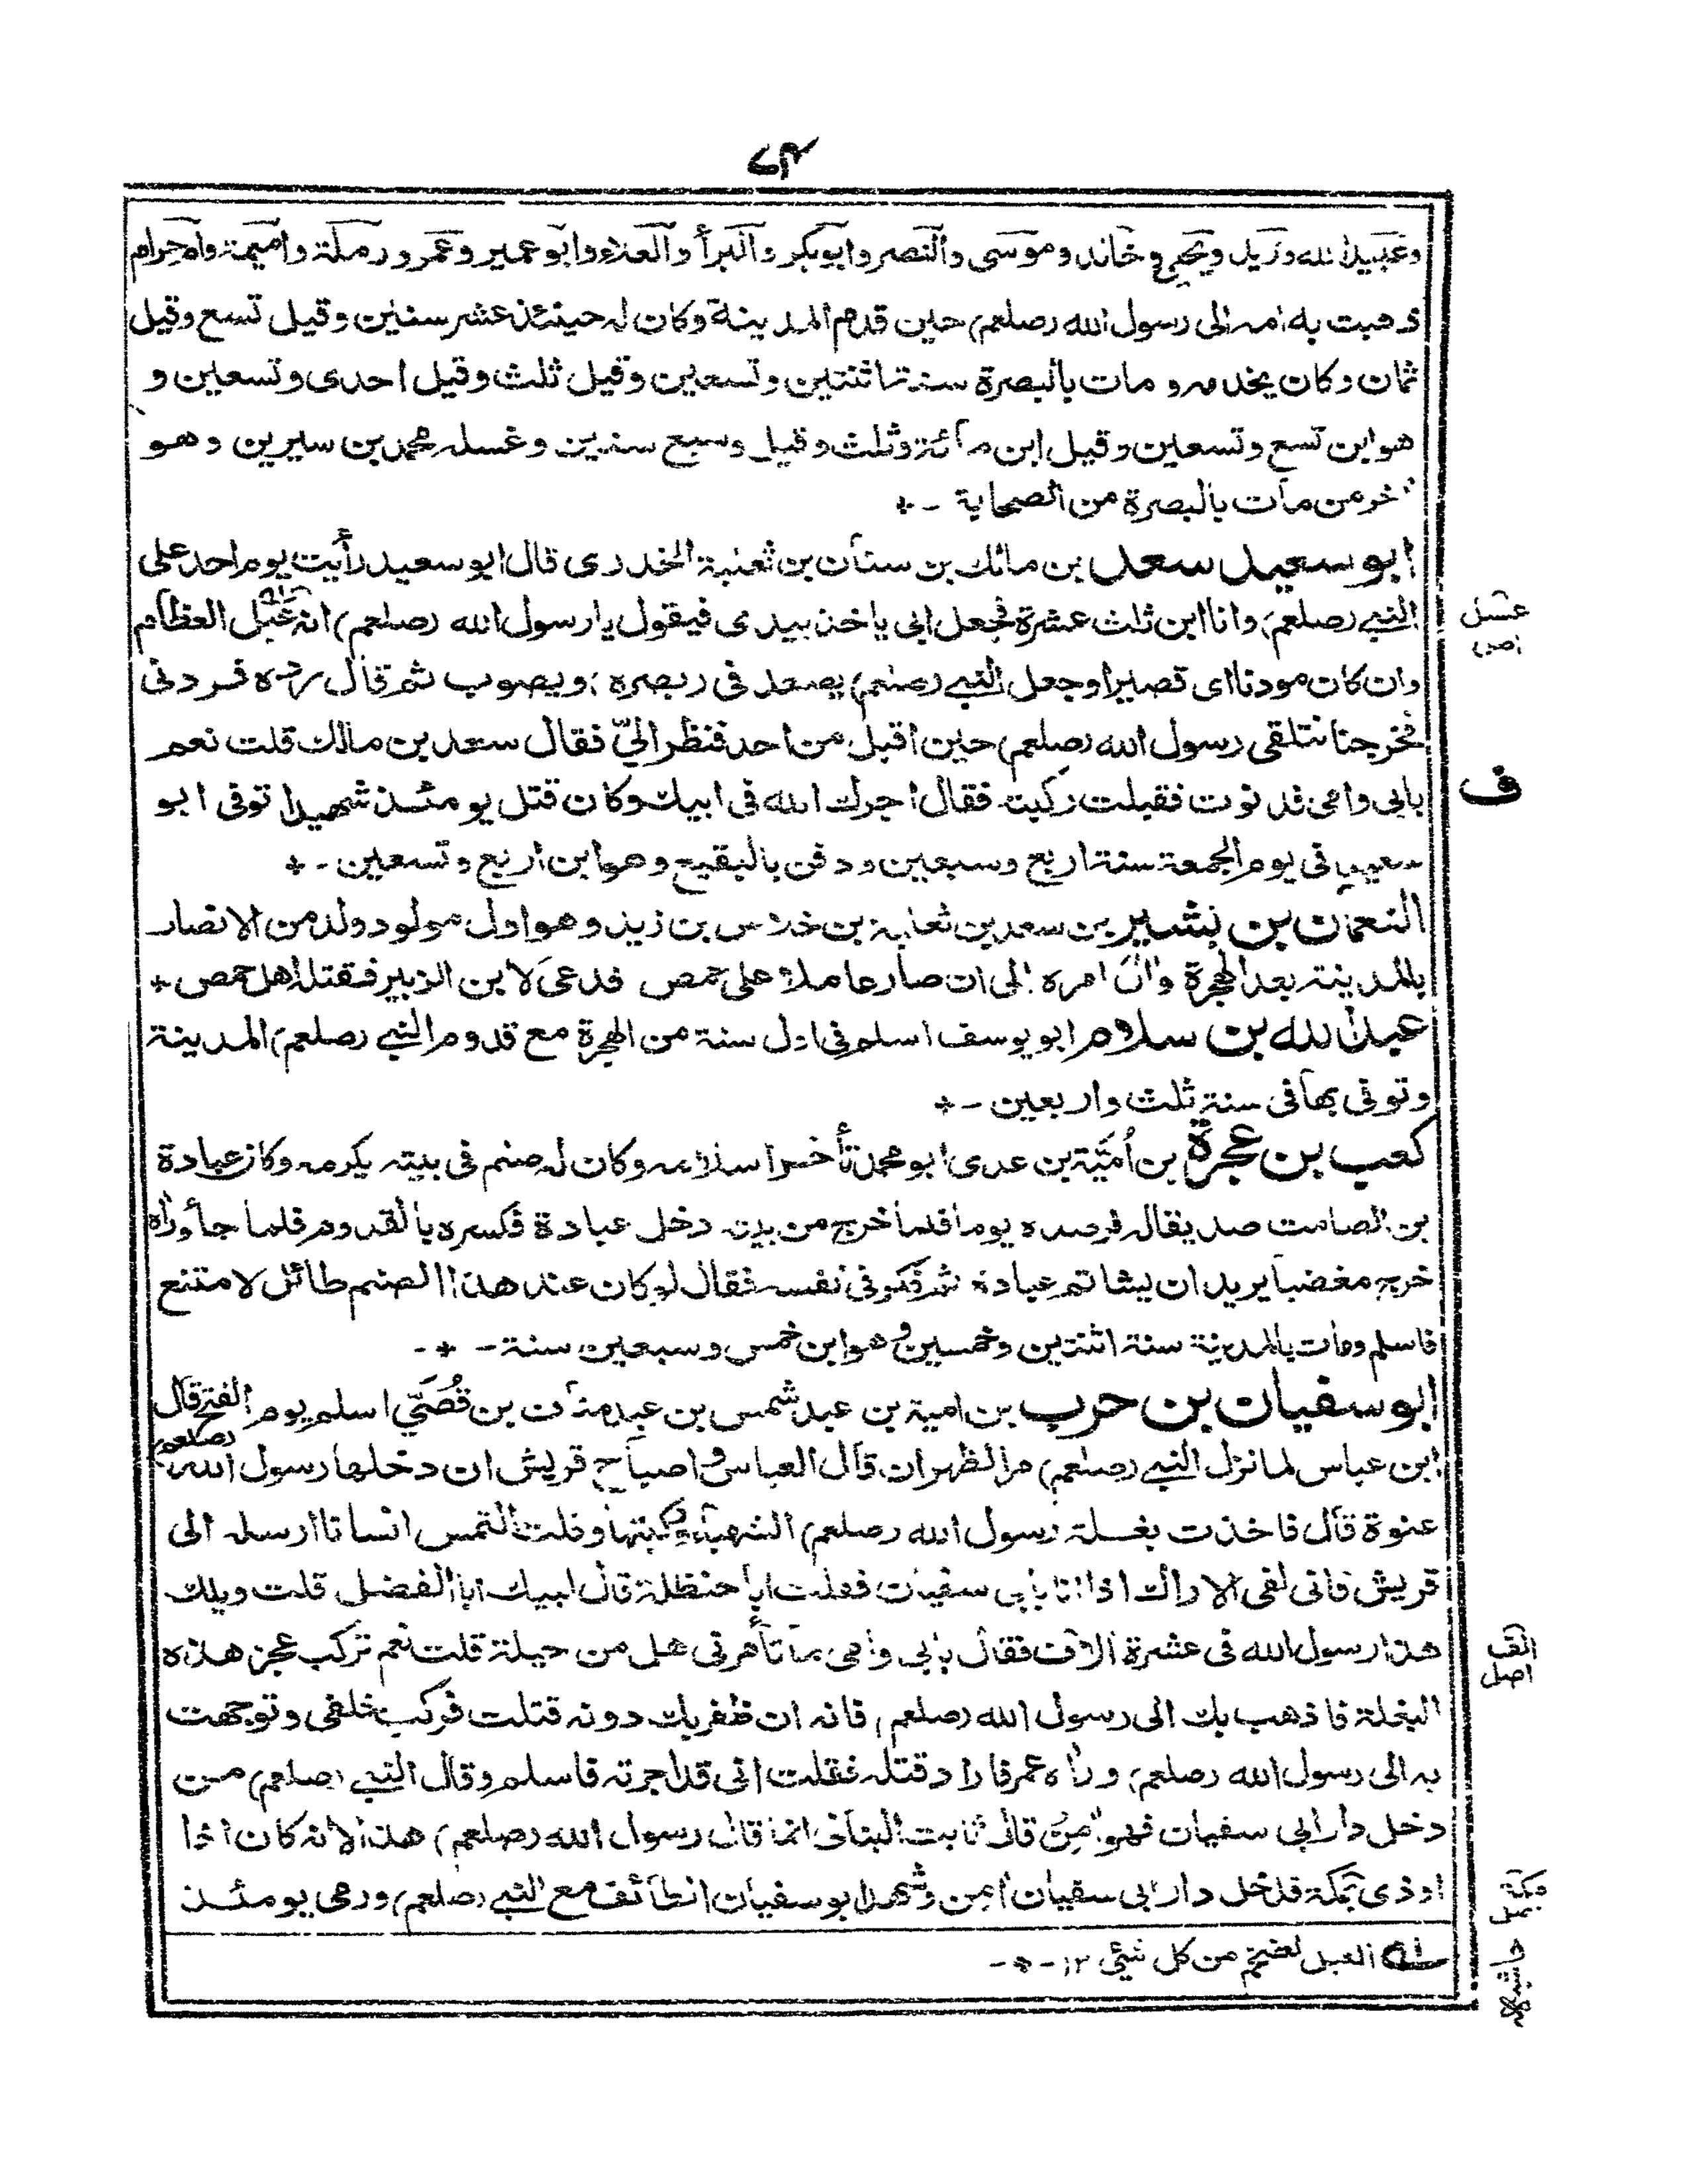 ٧٣
وعبيد الله وزيد ويحيى وخالد وموسى والنصر وابوبكر والبرأ والعلاء وابو عمير وعمر ورملة واميمة وام حرام
ذهبت به امه الى رسول الله (صلعم) حين قدم المدينة وكان له حينئذ عشر سنين وقيل تسع وقيل
ثمان وكان يخدمه و مات بالبصرة سنة اثنتين وتسعين وقيل ثلث وقيل احدى وتسعين و
هو ابن تسع وتسعين وقيل ابن مائة وثلث وقيل وسبع سنين وغسله محمد بن سيرين وهو
اخر من مات بالبصرة من الصحابة - *
ابو سعيد سعد بن مالك بن سنان بن ثعلبة الخدرى قال ابو سعيد رأيت يوم احد على
النبي (صلعم) وانا ابن ثلث عشرة فجعل ابى ياخذ بيدى فيقول يا رسول الله (صلعم) انه عبل العظام
وان كان مودنا اى قصيرا وجعل النبي (صلعم) يصعد فى (بصره) ويصوب ثم قال رده فردنى
فخرجنا نتلقى رسول الله (صلعم) حين اقبل من احد فنظر الىّ فقال سعد بن مالك قلت نعم
بابى وامى فد نوت فقبلت ركبته فقال اجرك الله فى ابيك وكان قتل يومئذ شهيدا توفى ابو
سعيد فى يوم الجمعة سنة اربع وسبعين ودفن بالبقيع وهو ابن اربع وتسعين - *
النعمان بن بشير بن سعد بن ثعلبة بن خلاس بن زيد وهو اول مولود ولد من الانصار
بالمدينة بعد الهجرة وال امره الى ان صار عاملا على حمص فدعى لابن الزبير فقتله اهل حمص *
عبد الله بن سلام ابو يوسف اسلم فى اول سنة من الهجرة مع قدوم النبي (صلعم) المدينة
وتوفى بها فى سنة ثلث واربعين - *
كعب بن عجرة بن أُميَّة بن عدى ابو محمد تأخر اسلامه وكان له صنم فى بيته يكرمه وكان عبادة
بن الصامت صديقا له فرصده يوما فلما خرج من بيته دخل عبادة فكسره بالقدوم فلما جأ ورأه
خرج مغضبا يريد ان يشاتم عبادة ثم فكر فى نفسه فقال لو كان عند هذا الصنم طائل لامتنع
فاسلم ومات بالمدينة سنة اثنتين وخمسين و هو ابن خمس وسبعين سنة - * -
ابو سفيان بن حرب بن امية بن عبد شمس بن عبد مناف بن قُصَيّ اسلم يوم الفتح قال
ابن عباس لما نزل النبي (صلعم) مر الظهران قال العباس واصباح قريش ان دخلها رسول الله (صلعم)
عنوة قال فاخذت بغلة رسول الله (صلعم) الشهباء فركبتها وقلت التمس انسانا ارسله الى
قريش فانى لفى الاراك اذا انا بابى سفيان فقلت ابا حنظلة قال لبيك ابا الفضل قلت ويلك
هذا رسول الله فى عشرة الاف فقال بابى وامى ما تأمرنى هل من حيلة قلت نعم تركب عجز هذه
البغلة فاذهب بك الى رسول الله (صلعم) فانه ان ظفر بك دونه قتلت فركب خلفى وتوجهت
به الى رسول الله (صلعم) ورأه عمر فاراد قتله فقلت انى قد اجرته فاسلم وقال النبي (صلعم) من
دخل دار ابى سفيان فهو امن قال ثابت البنانى انما قال رسول الله (صلعم) هذا لانه كان اذا
اوذى بمكة فدخل دار ابى سفيان امن وشهد ابو سفيان الطائف مع النبي (صلعم) ورمى يومئذ
العبل لضخم من كل شئى ١٢ - * -
اصل
ف
الف
اصل
بمكة
اصل
حاشيه